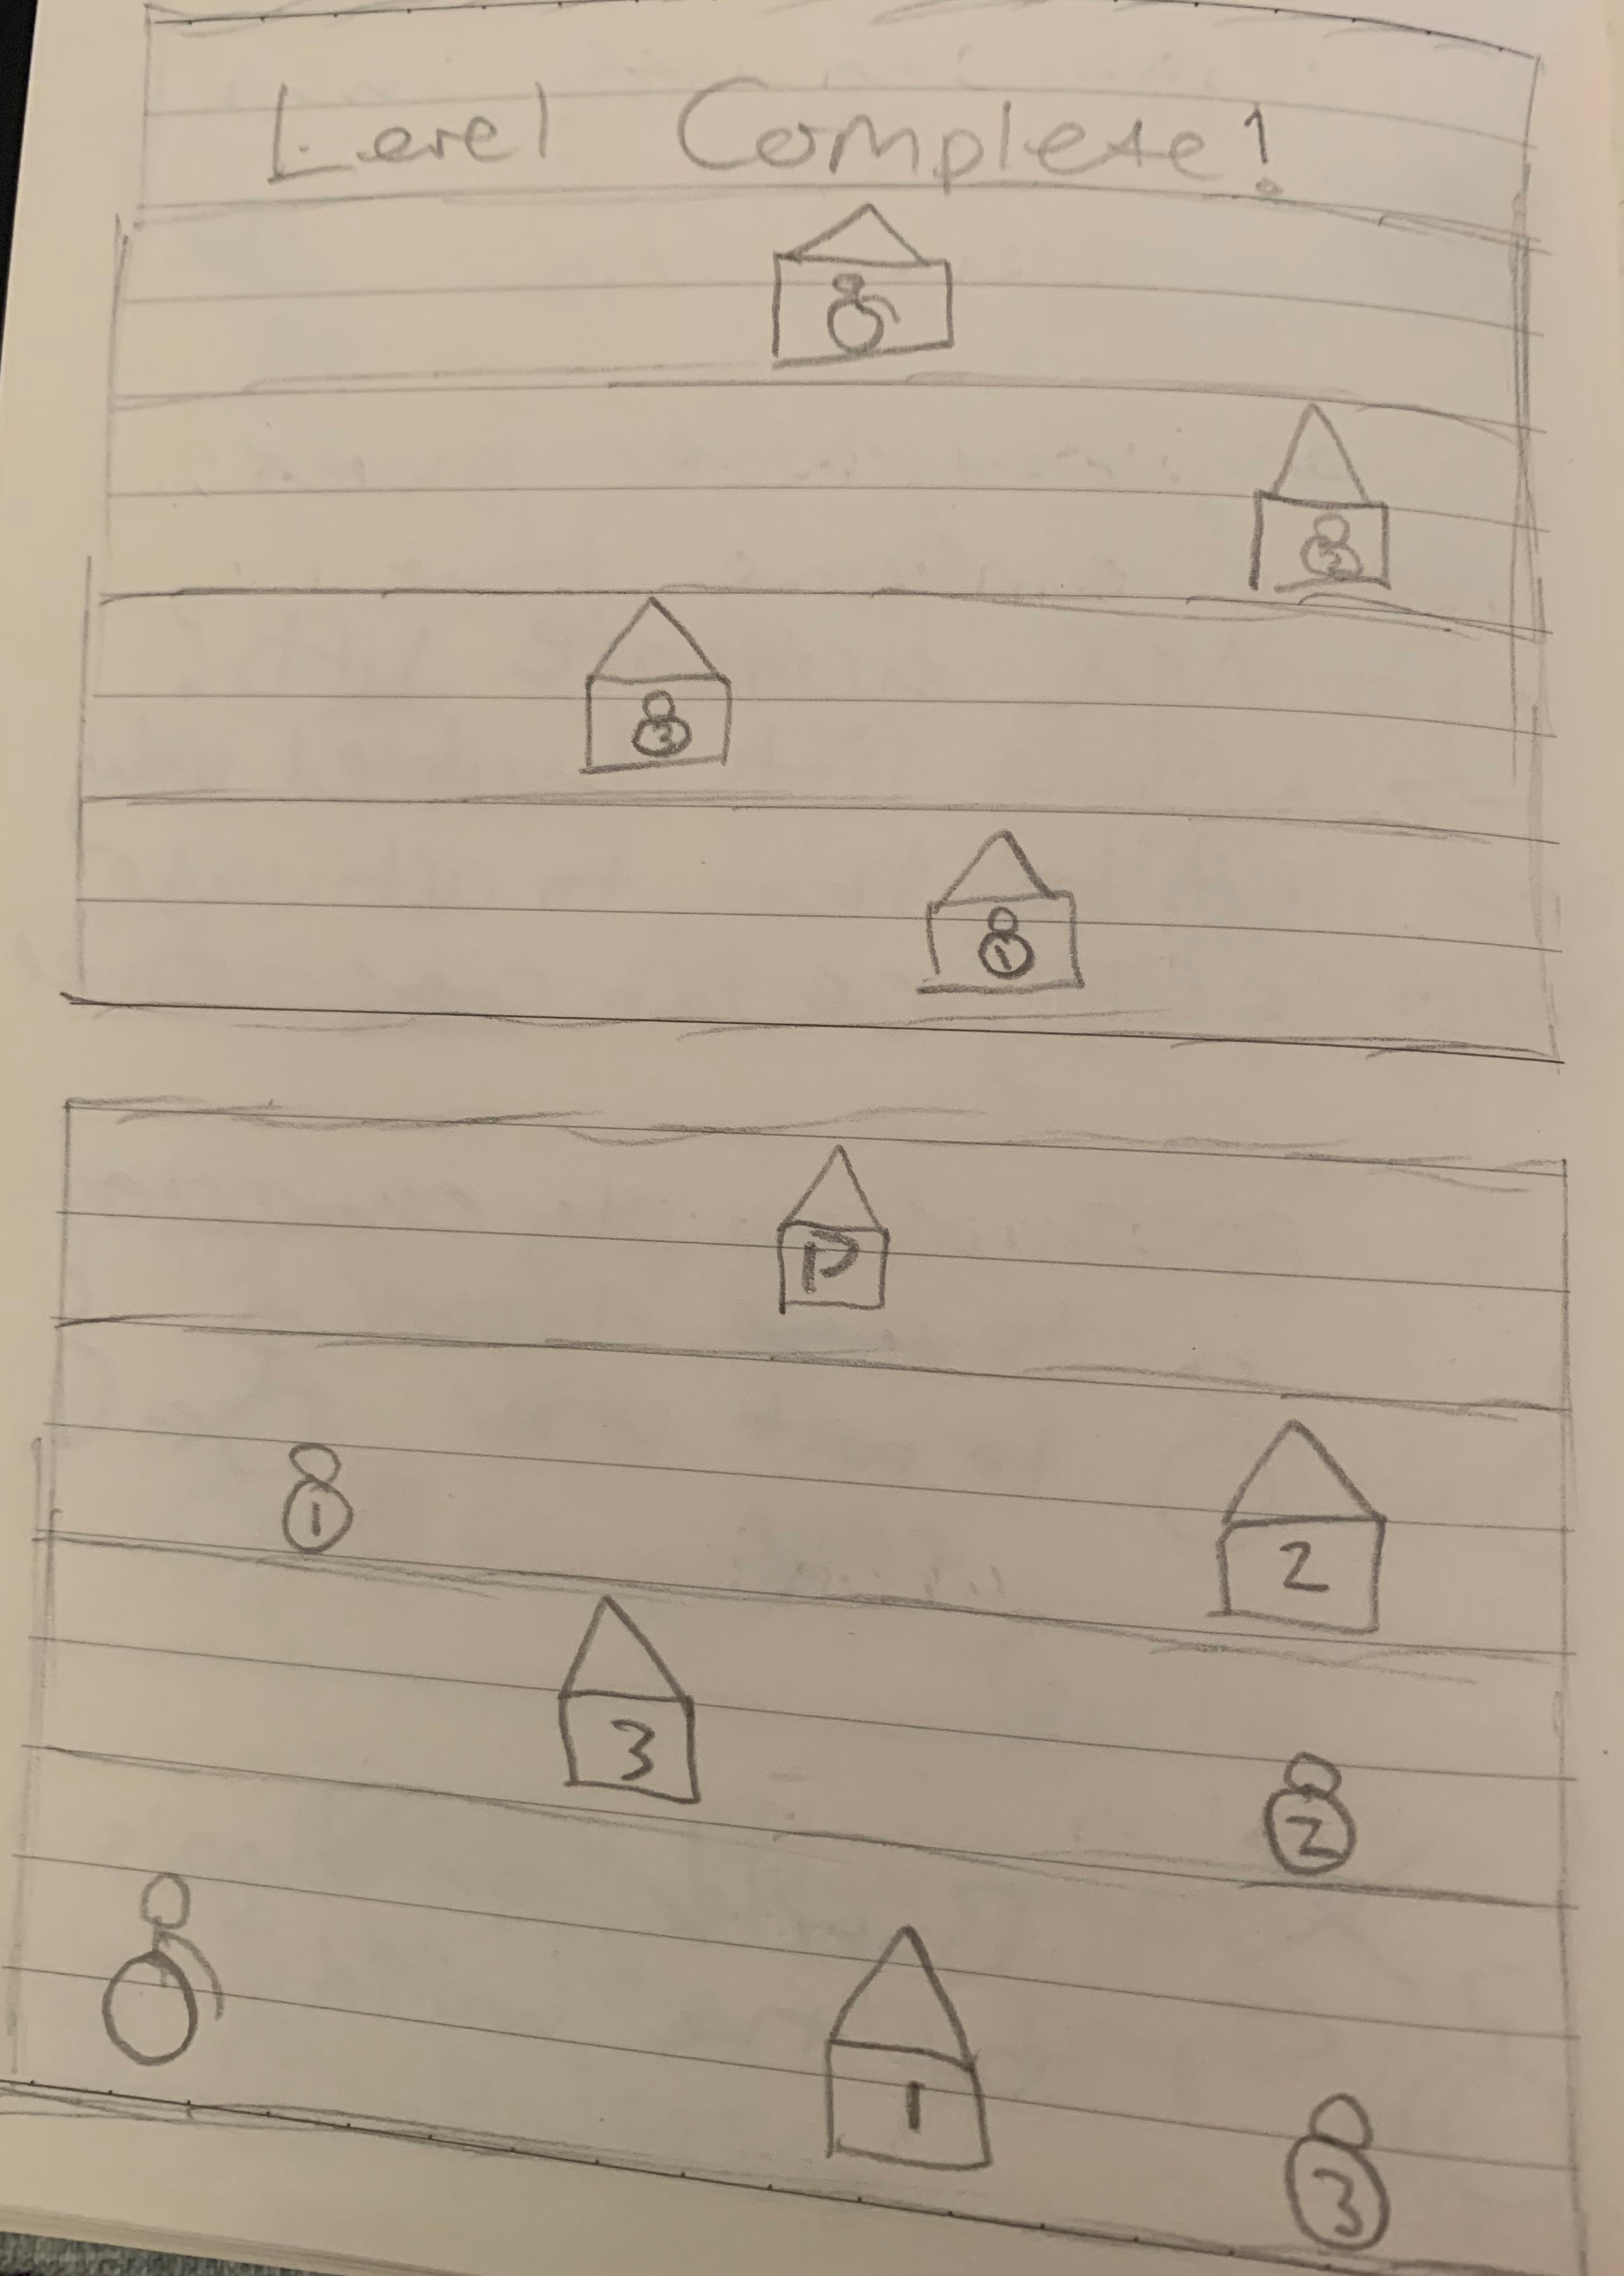 Level Complete!
2
3
1
P
1
2
3
2
1
3